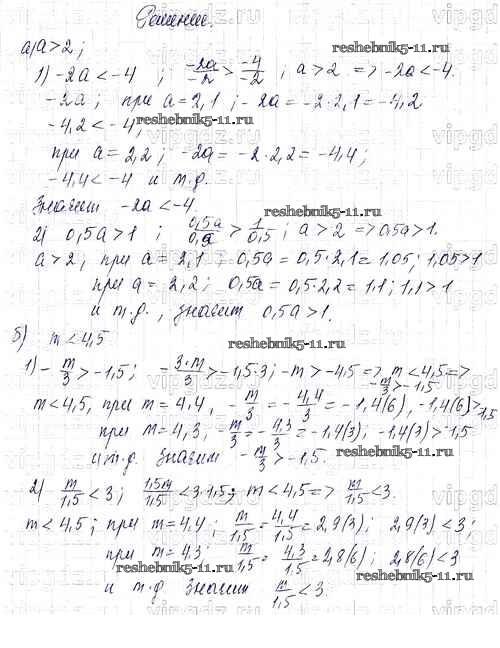 Решение.
а) a > 2;
1) -2a < -4 ; -2a/-2 > -4/2 ; a > 2 => -2a < -4.
-2a; при a = 2,1; -2a = -2·2,1 = -4,2
-4,2 < -4;
при a = 2,2; -2a = -2·2,2 = -4,4;
-4,4 < -4 и т.д.
Значит -2a < -4.
2) 0,5a > 1 ; 0,5a/0,a > 1/0,5 ; a > 2 => 0,5a > 1.
a > 2; при a = 2,1 ; 0,5a = 0,5·2,1 = 1,05; 1,05 > 1
при a = 2,2; 0,5a = 0,5·2,2 = 1,1; 1,1 > 1
и т.д., значит 0,5a > 1.
б) m < 4,5
1) -m/3 > -1,5; -3·m/3 > -1,5·3; -m > -4,5 => m < 4,5 =>
-m/3 > -1,5
m < 4,5, при m = 4,4, -m/3 = -4,4/3 = -1,4(6), -1,4(6) > -1,5
при m = 4,3; -m/3 = -4,3/3 = -1,4(3); -1,4(3) > -1,5
и т.д. Значит -m/3 > -1,5.
2) m/1,5 < 3; 1,5m/1,5 < 3·1,5; m < 4,5 => m/1,5 < 3.
m < 4,5; при m = 4,4; m/1,5 = 4,4/1,5 = 2,9(3); 2,9(3) < 3;
при m = 4,3 m/1,5 = 4,3/1,5 = 2,8(6); 2,8(6) < 3
и т.д Значит m/1,5 < 3.
reshebnik5-11.ru
reshebnik5-11.ru
reshebnik5-11.ru
reshebnik5-11.ru
reshebnik5-11.ru
reshebnik5-11.ru
reshebnik5-11.ru